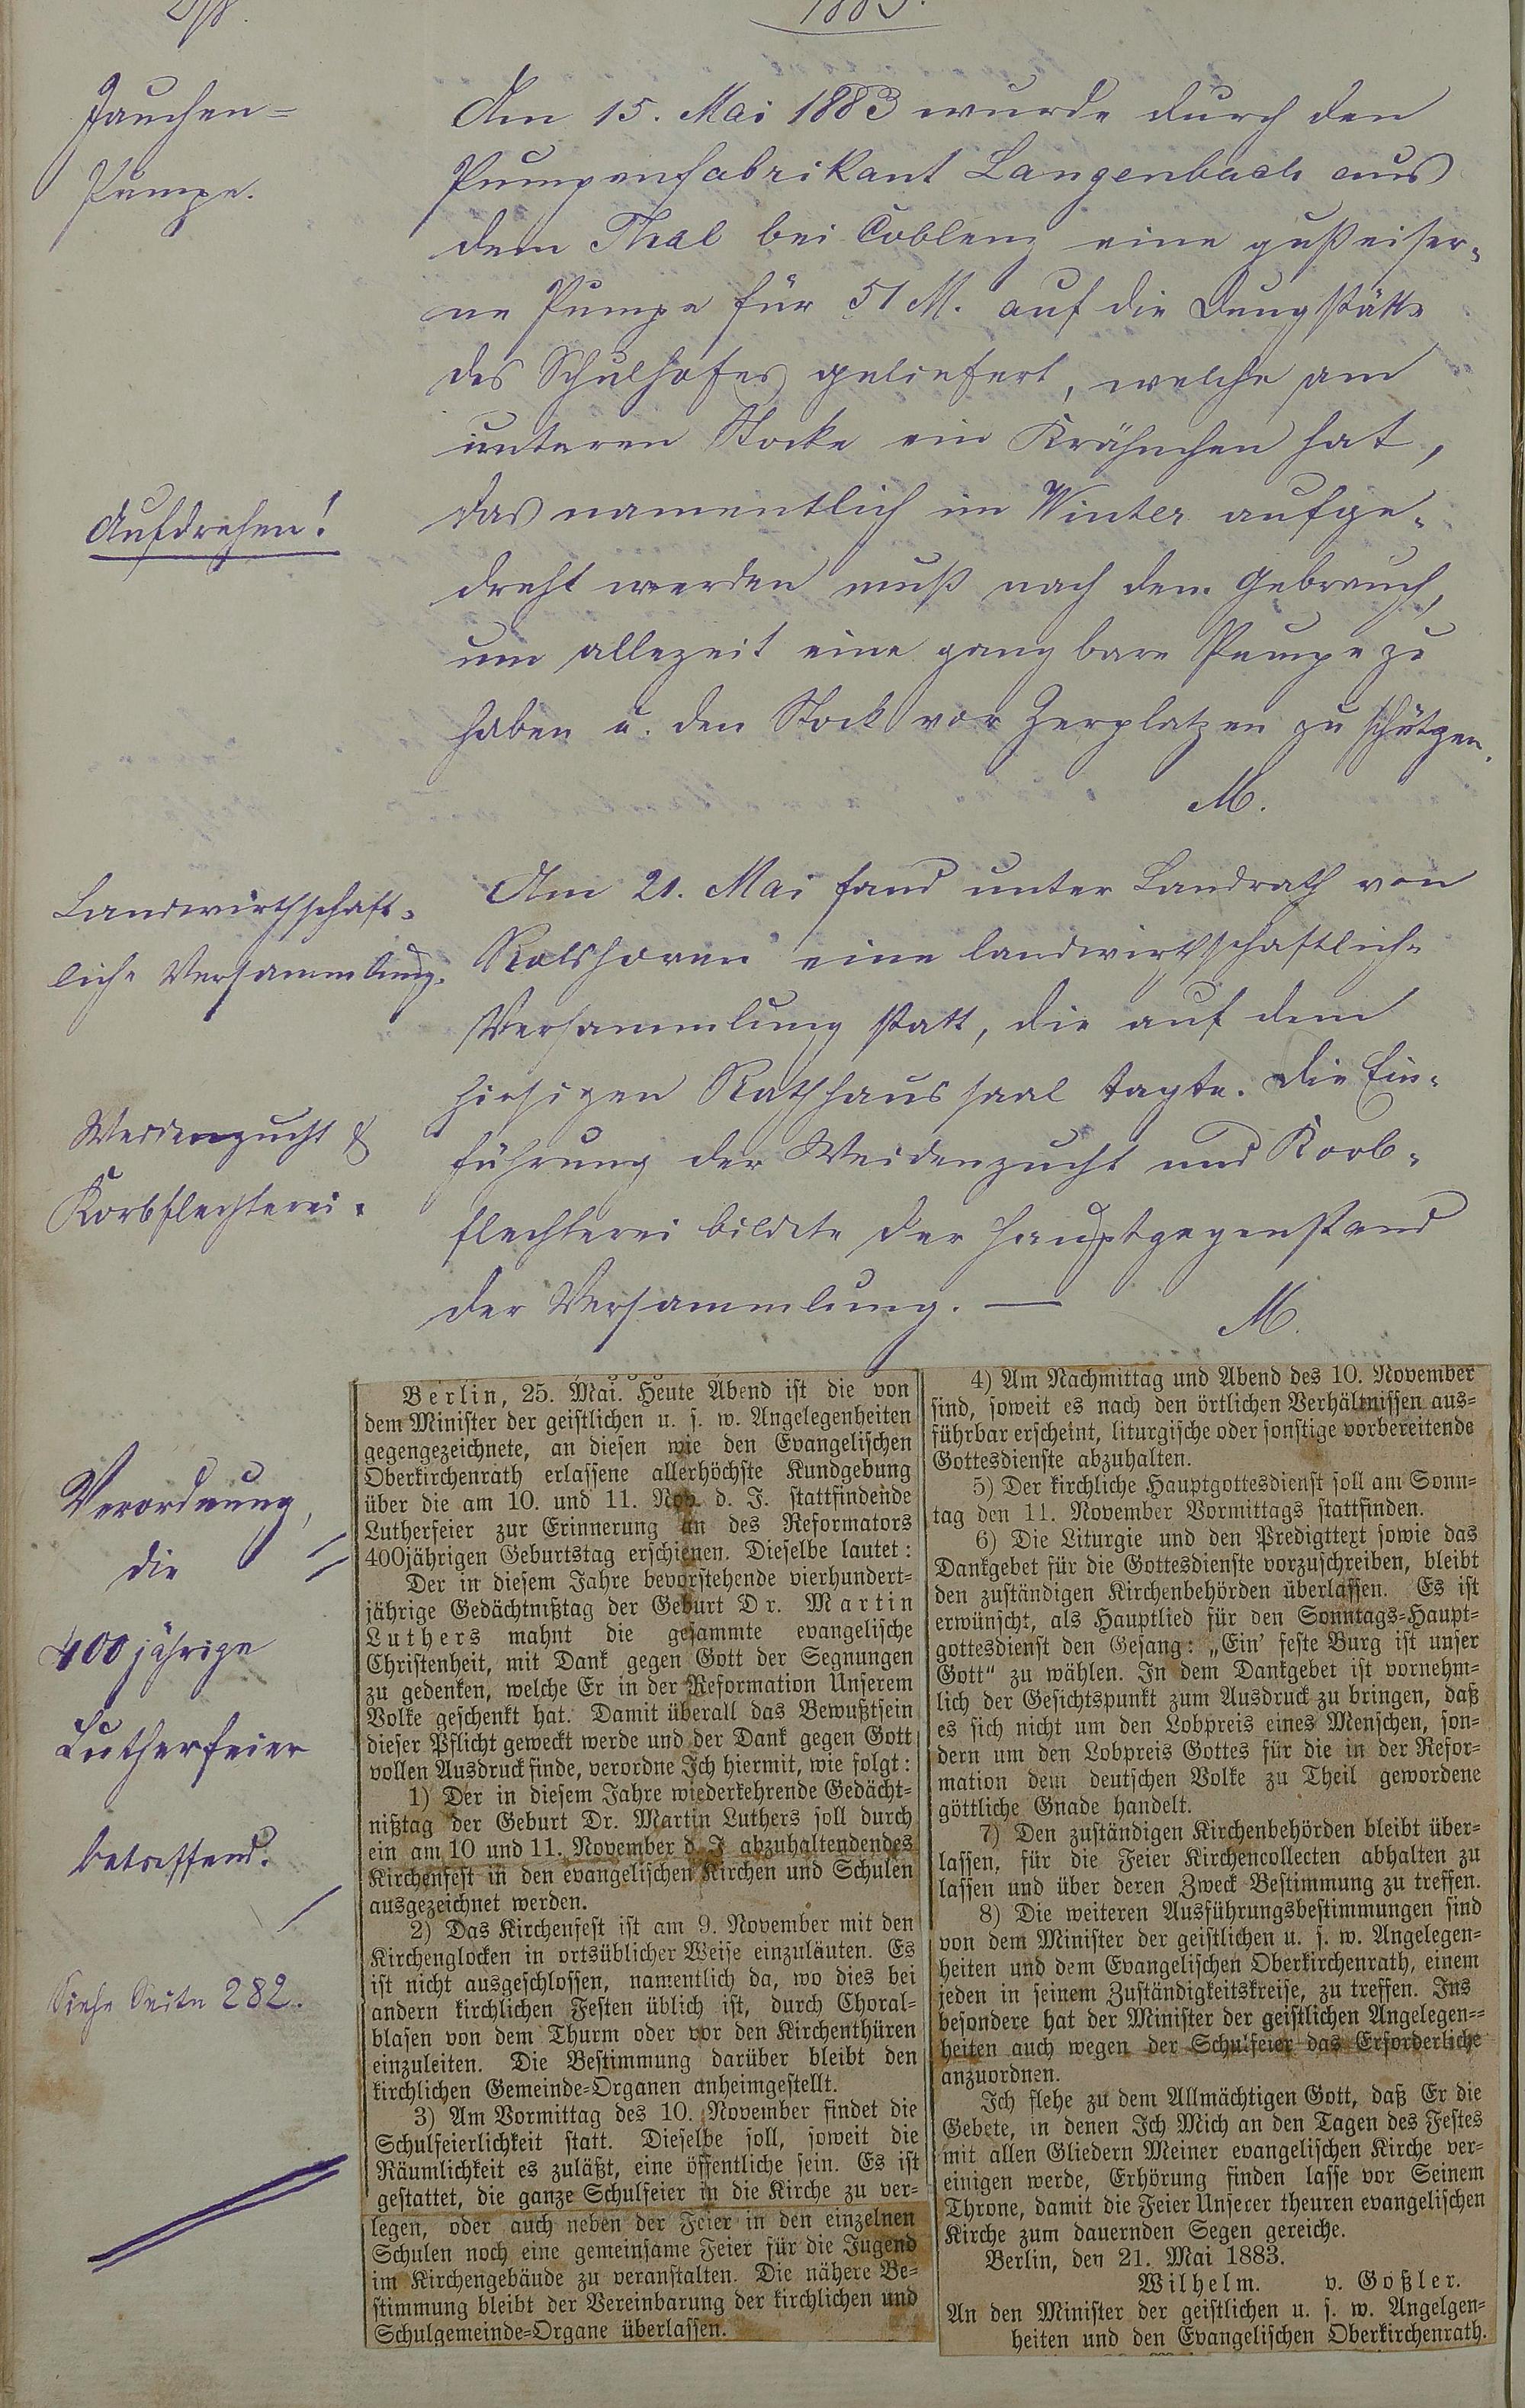 1883.
Jauchen-
Pumpe.
Am 15. Mai 1883 wurde durch den
Pumpenfabrikant Langenbach aus
dem Thal bei Coblenz eine gußeiser-
ne Pumpe für 51 M. auf die Dungstätte
des Schulhofes geliefert, welche am
unteren Stocke ein Krähnchen hat,
Aufdrehen!
das namentlich im Winter aufge-
dreht werden muß nach dem Gebrauch,
um allezeit eine gangbare Pumpe zu
haben u. den Stock vor Zerplatzen zu schützen.
M.
Landwirthschaft-
liche Versammlung.
Am 21. Mai fand unter Landrath von
Rolshoven eine landwirthschaftliche
Versammlung statt, die auf dem
hiesigen Rathhaussaal tagte. Die Ein-
Weidenzucht &
Korbflechterei.
führung der Weidenzucht und Korb-
flechterei bildete der Hauptgegenstand
der Versammlung. —
M.
Verordnung,
die
400jährige
Lutherfeier
betreffend.
Siehe Seite 282.
Berlin, 25. Mai. Heute Abend ist die von
dem Minister der geistlichen u. s. w. Angelegenheiten
gegengezeichnete, an diesen wie den Evangelischen
Oberkirchenrath erlassene allerhöchste Kundgebung
über die am 10. und 11. Nov. d. J. stattfindende
Lutherfeier zur Erinnerung an des Reformators
400jährigen Geburtstag erschienen. Dieselbe lautet:
Der in diesem Jahre bevorstehende vierhundert-
jährige Gedächtnißtag der Geburt Dr. Martin
Luthers mahnt die gesammte evangelische
Christenheit, mit Dank gegen Gott der Segnungen
zu gedenken, welche Er in der Reformation Unserem
Volke geschenkt hat. Damit überall das Bewußtsein
dieser Pflicht geweckt werde und der Dank gegen Gott
vollen Ausdruck finde, verordne Ich hiermit, wie folgt:
1) Der in diesem Jahre wiederkehrende Gedächt-
nißtag der Geburt Dr. Martin Luthers soll durch
ein am 10 und 11. November d. J abzuhaltendendes
Kirchenfest in den evangelischen Kirchen und Schulen
ausgezeichnet werden.
2) Das Kirchenfest ist am 9. November mit den
Kirchenglocken in ortsüblicher Weise einzuläuten. Es
ist nicht ausgeschlossen, namentlich da, wo dies bei
andern kirchlichen Festen üblich ist, durch Choral-
blasen von dem Thurm oder vor den Kirchenthüren
einzuleiten. Die Bestimmung darüber bleibt den
kirchlichen Gemeinde-Organen anheimgestellt.
3) Am Vormittag des 10. November findet die
Schulfeierlichkeit statt. Dieselbe soll, soweit die
Räumlichkeit es zuläßt, eine öffentliche sein. Es ist
gestattet, die ganze Schulfeier in die Kirche zu ver-
legen, oder auch neben der Feier in den einzelnen
Schulen noch eine gemeinsame Feier für die Jugend
im Kirchengebäude zu veranstalten. Die nähere Be-
stimmung bleibt der Vereinbarung der kirchlichen und
Schulgemeinde-Organe überlassen.
4) Am Nachmittag und Abend des 10. November
sind, soweit es nach den örtlichen Verhältnissen aus-
führbar erscheint, liturgische oder sonstige vorbereitende
Gottesdienste abzuhalten.
5) Der kirchliche Hauptgottesdienst soll am Sonn-
tag den 11. November Vormittags stattfinden.
6) Die Liturgie und den Predigttext sowie das
Dankgebet für die Gottesdienste vorzuschreiben, bleibt
den zuständigen Kirchenbehörden überlassen. Es ist
erwünscht, als Hauptlied für den Sonntags-Haupt-
gottesdienst den Gesang: „Ein' feste Burg ist unser
Gott“ zu wählen. In dem Dankgebet ist vornehm-
lich der Gesichtspunkt zum Ausdruck zu bringen, daß
es sich nicht um den Lobpreis eines Menschen, son-
dern um den Lobpreis Gottes für die in der Refor-
mation dem deutschen Volke zu Theil gewordene
göttliche Gnade handelt.
7) Den zuständigen Kirchenbehörden bleibt über-
lassen, für die Feier Kirchencollecten abhalten zu
lassen und über deren Zweck Bestimmung zu treffen.
8) Die weiteren Ausführungsbestimmungen sind
von dem Minister der geistlichen u. s. w. Angelegen-
heiten und dem Evangelischen Oberkirchenrath, einem
jeden in seinem Zuständigkeitskreise, zu treffen. Ins
besondere hat der Minister der geistlichen Angelegen-
heiten auch wegen der Schulfeier das Erforderliche
anzuordnen.
Ich flehe zu dem Allmächtigen Gott, daß Er die
Gebete, in denen Ich Mich an den Tagen des Festes
mit allen Gliedern Meiner evangelischen Kirche ver-
einigen werde, Erhörung finden lasse vor Seinem
Throne, damit die Feier Unserer theuren evangelischen
Kirche zum dauernden Segen gereiche.
Berlin, den 21. Mai 1883.
Wilhelm. v. Goßler.
An den Minister der geistlichen u. s. w. Angelgen-
heiten und den Evangelischen Oberkirchenrath.